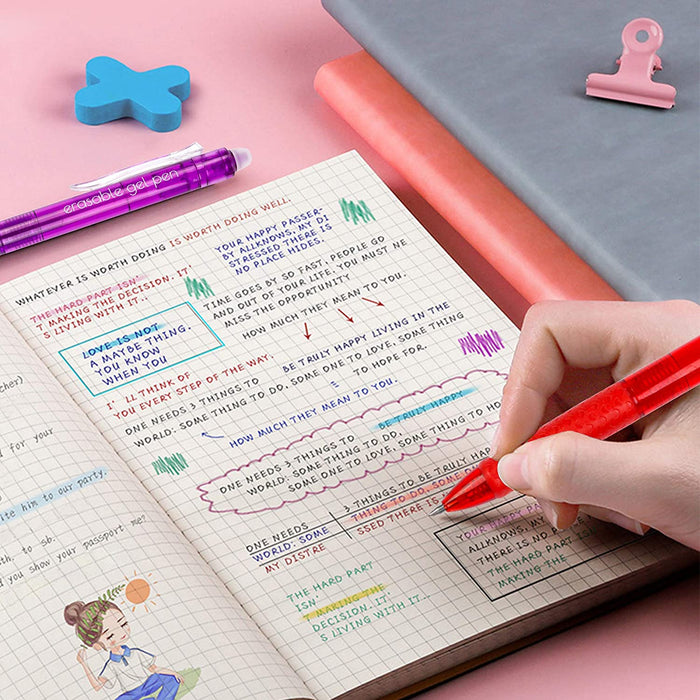 erasable gel pen
WHATEVER IS WORTH DOING IS WORTH DOING WELL.
THE HARD PART ISN'
T MAKING THE DECISION. IT'
S LIVING WITH IT..
YOUR HAPPY PASSER-
BY ALLKNOWS, MY DI
STRESSED THERE IS
NO PLACE HIDES.
LOVE IS NOT
A MAYBE THING.
YOU KNOW
WHEN YOU
TIME GOES BY SO FAST, PEOPLE GO
AND OUT OF YOUR LIFE. YOU MUST NE
MISS THE OPPORTUNITY
HOW MUCH THEY MEAN TO YOU.
I' LL THINK OF
YOU EVERY STEP OF THE WAY.
BE TRULY HAPPY LIVING IN THE
ONE NEEDS 3 THINGS TO
WORLD: SOME THING TO DO, SOME ONE TO LOVE, SOME THING
TO HOPE FOR.
HOW MUCH THEY MEAN TO YOU.
BE TRULY HAPPY
ONE NEEDS 3 THINGS TO
WORLD: SOME THING TO DO,
SOME ONE TO LOVE, SOME THING TO HO
3 THINGS TO BE TRULY HAP
ONE NEEDS
THING TO DO, SOME ON
WORLD. SOME
SSED THERE IS
MY DISTRE
YOUR HAPPY PA
ALLKNOWS, MY
THERE IS NO P
THE HARD PART IS
MAKING THE
THE HARD PART
ISN'
T MAKING THE
DECISION. IT'
S LIVING WITH IT..
cher)
d for your
ite him to our party.
th, to sb.
d you show your passport me?